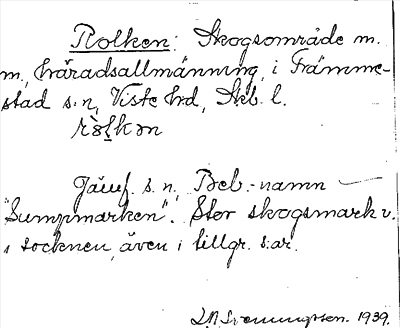 Rolken: Skogsområde m.
m, häradsallmänning, i Främme-
stad s:n, Viste hd, Skb. l.
rölkən
Jämf. s. n. Beb.-namn
"Sumpmarken". Stor skogsmark v.
i socknen, även i tillgr. s:ar.
1939.